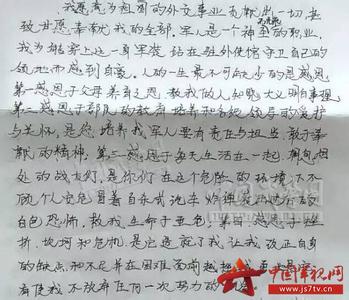 我愿意为祖国的外交事业贡献出一切,甚
至甘愿奉献我的全部。军人是一个神圣的职业,
我为能穿上这一身军装站在驻外使馆守卫自己的
领地而感到自豪。人的一生最不可缺少的是感恩
第一感恩于父母养育之恩,教我做人知晓大义明白事理
第二感恩于部队的教育培养和各级领导的爱护
与关怀,是您培养我军人要有责任与担当,敢于奉
献的精神;第三感恩于每天生活在一起,朝夕相
处的战友们,是你们在这个危险的环境下不
顾个人安危冒着自杀式汽车炸弹袭击
白色恐怖,救我生命于
折、坎坷和危机,是它造就了我,让我改正自身
的缺点和不足并在困难面前越
有使我不放弃任何一次努力的
中国军视网
www.js7tv.cn